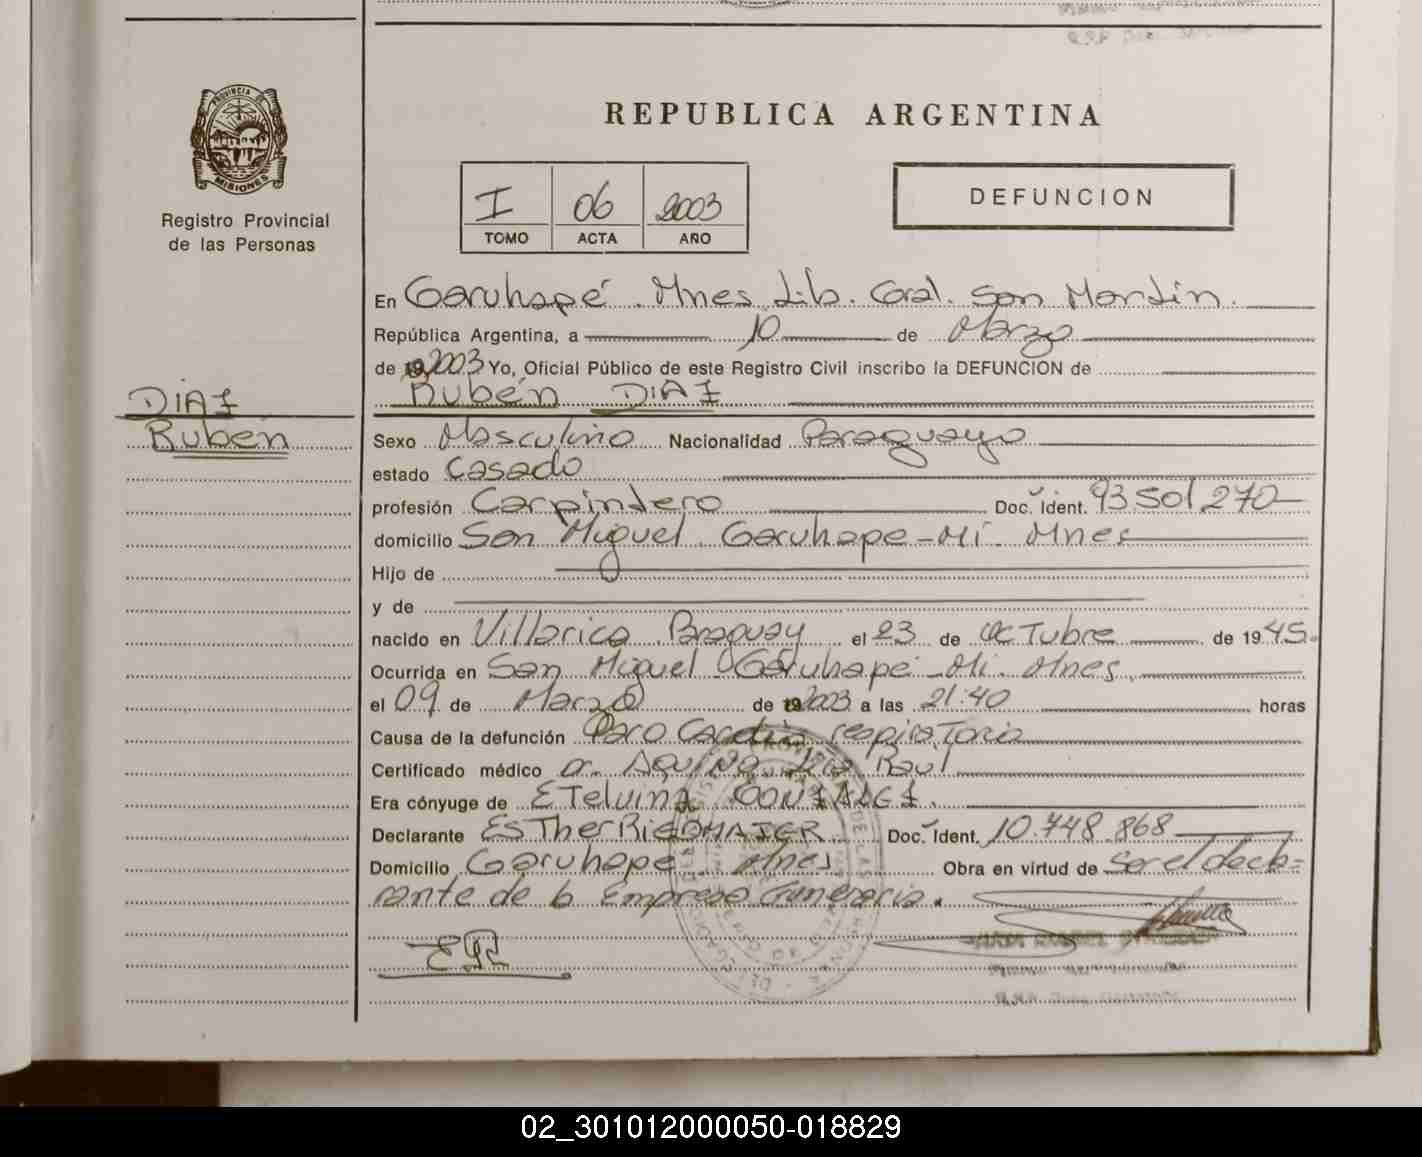 PROVINCIA DE
MISIONES
Registro Provincial
de las Personas
REPUBLICA ARGENTINA
I 06 2003
TOMO ACTA AÑO
DEFUNCION
En Garuhapé. Mnes Lib. Gral. San Martín.
República Argentina, a 10 de Marzo
de 2003 Yo, Oficial Público de este Registro Civil inscribo la DEFUNCION de
Rubén DIAZ
DIAZ
Rubén
Sexo Masculino Nacionalidad Paraguayo
estado Casado
profesión Carpintero Doc. Ident. 93501270
domicilio San Miguel. Garuhape-Mí. Mnes
Hijo de
y de
nacido en Villarica. Paraguay el 23 de Octubre de 1945.
Ocurrida en San Miguel Garuhapé-Mí. Mnes.
el 09 de Marzo de 2003 a las 21:40 horas
Causa de la defunción Paro Cardio respiratorio
Certificado médico Dr. Aquino Raul
Era cónyuge de ETelvina GONZALEZ.
Declarante EsTher RIEDMAIER Doc. Ident. 10.748.868
Domicilio Garuhape. Mnes Obra en virtud de Ser el decla-
rante de la Empresa Funeraria.
ER
02_301012000050-018829